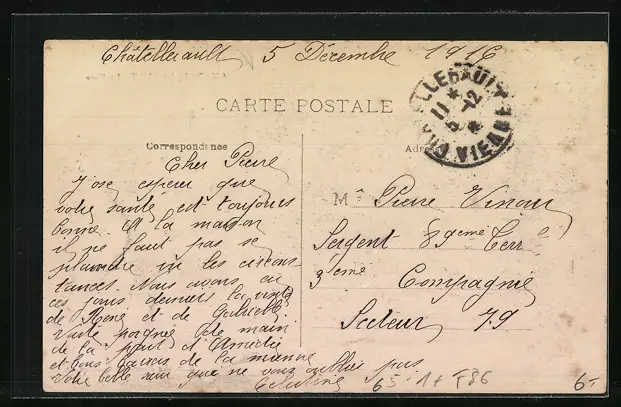 Châtellerault 5 Décembre 1916
CARTE POSTALE
CHATELLERAULT
11 * 5-12 *
VIENNE
Correspondance
Adresse
Cher Pierre
J'ose espérer que
votre santé est toujours
bonne. A la maison
il ne faut pas se
plaindre vu les circons
tances. Nous avons eu
ces jours derniers la visite
de René et de Gabriel
poignée de main
de la part d'Amédée
et bons baisers de la mienne
Votre belle sœur qui ne vous oublie pas
Célestine
M. Pierre
Sergent 89eme Terr
3eme Compagnie
Secteur 79
65-1+ F86
6-